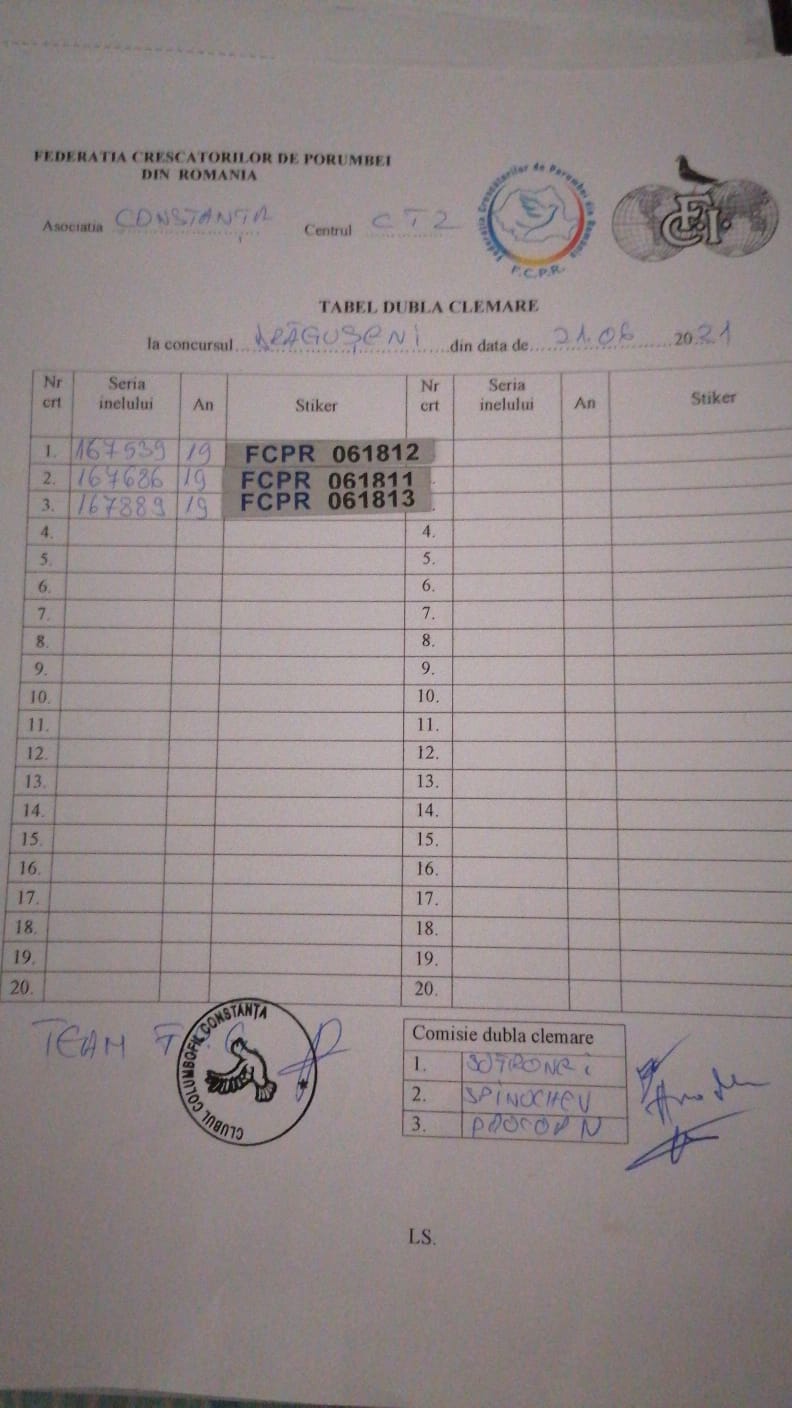 FEDERATIA CRESCATORILOR DE PORUMBEI
DIN ROMANIA
Asociatia CONSTANȚA Centrul CT2
Federatia Crescatorilor de Porumbei din Romania
F.C.P.R.
FCI
TABEL DUBLA CLEMARE
la concursul DRĂGUȘENI din data de 21.06 2021
Nr crt Seria inelului An Stiker Nr crt Seria inelului An Stiker
1. 167539 19 FCPR 061812
2. 167686 19 FCPR 061811
3. 167889 19 FCPR 061813
4. 4.
5. 5.
6. 6.
7. 7.
8. 8.
9. 9.
10. 10.
11. 11.
12. 12.
13. 13.
14. 14.
15. 15.
16. 16.
17. 17.
18. 18.
19. 19.
20. 20.
TEAM
CLUBUL COLUMBOFIL CONSTANȚA
Comisie dubla clemare
1.
2. SPINOCHEU
3.
LS.